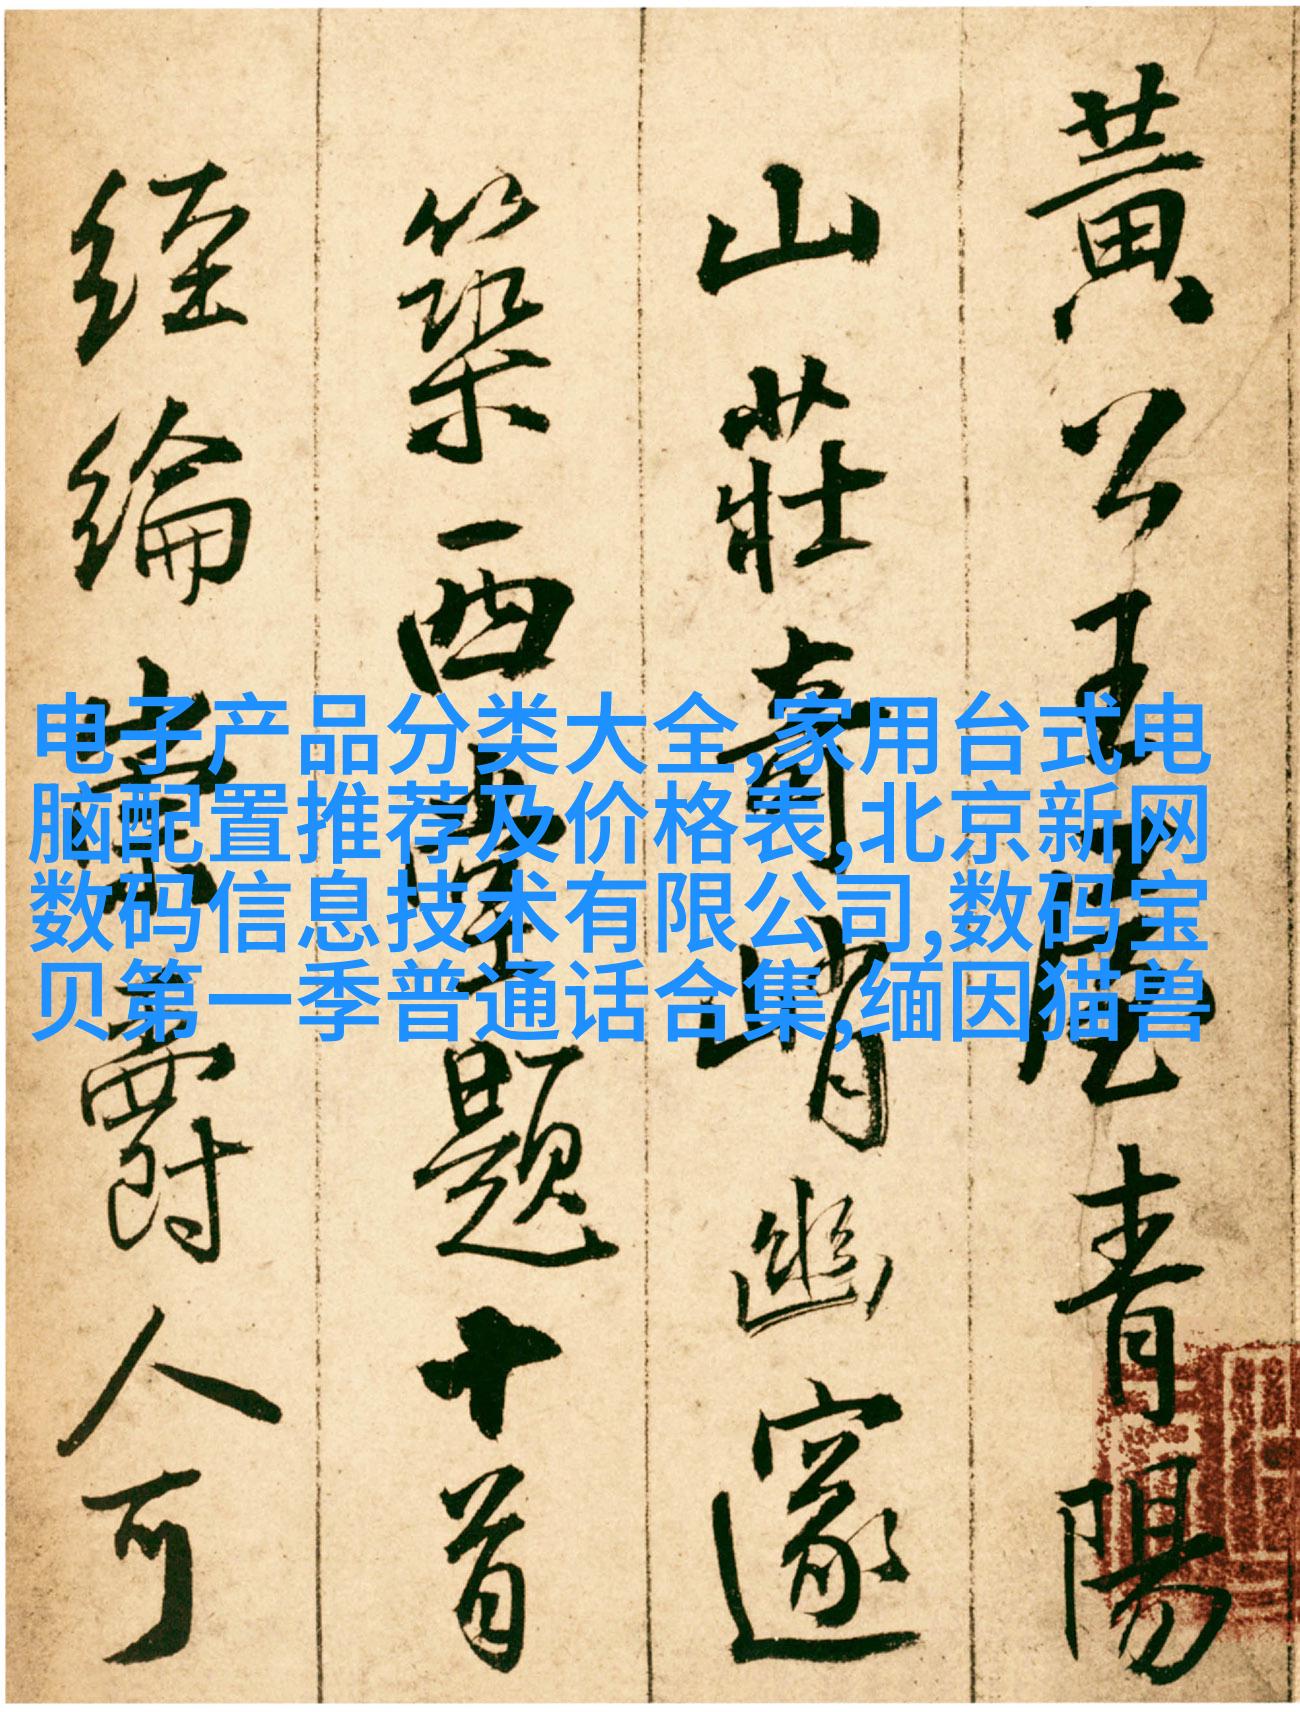 黃公王屋青陽
山莊奇峭幽邃
築西題十首
經綸爵人可
电子产品分类大全,家用台式电
脑配置推荐及价格表,北京新网
数码信息技术有限公司,数码宝
贝第一季普通话合集,缅因猫兽